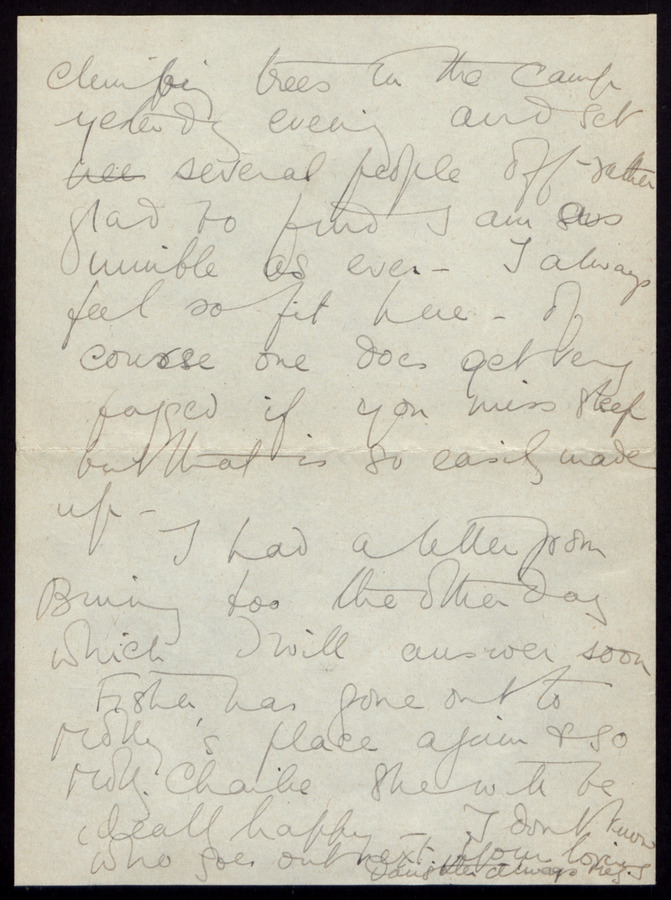 climbing trees in the camp
yesterday evening and set
several people off - rather
glad to find I am as
nimble as ever - I always
feel so fit here - of
course one does get very
fagged if you miss sleep
but that is so easily made
up -
I had a letter from
too the other day
which I will answer soon
Fisher has gone out to
Molly's place again & so
Molly, Charlie & she will be
ideally happy - I don't know
who goes out next. Your loving
Daughter always